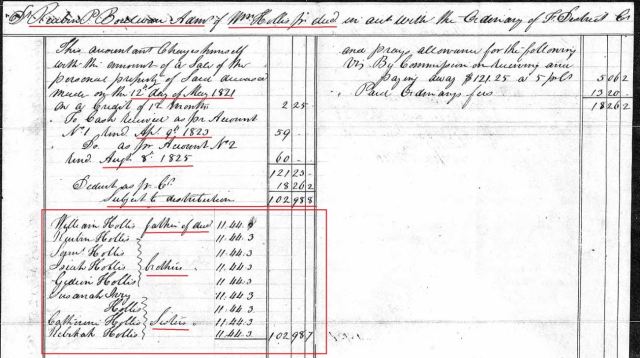 Dr Reubin P. Boulware Admr of Wm Hollis Jr decd in acct with the Ordinary of F District Cr
This accountant Charges himself
with the amount of a Sale of the
personal property of Said deceased
made on the 12th day of May 1821
on a Credit of 12 months 2 25
To Cash received as pr Account
No 1 rend Apr 9th 1823 59 -
Do as pr Account No 2
rend Augt 8th 1825 60 -
121 25 -
Deduct as pr Cr 18 26 2
Subject to distribution 102 98 8
and prays allowance for the following
Viz By Commission on receiving and
paying away $121.25 a 5 pr Ct 5 06 2
Paid Ordinarys fees 13 20
18 26 2
William Hollis father of decd 11.44.
Reubin Hollis 11.44.3
Hollis 11.44.3
Hollis brothers 11.44.3
Hollis 11.44.3
Susanah 11.44.3
Hollis 11.44.3
Catherine Hollis Sisters 11.44.3
Rebekah Hollis 11.44.3 102 98 7